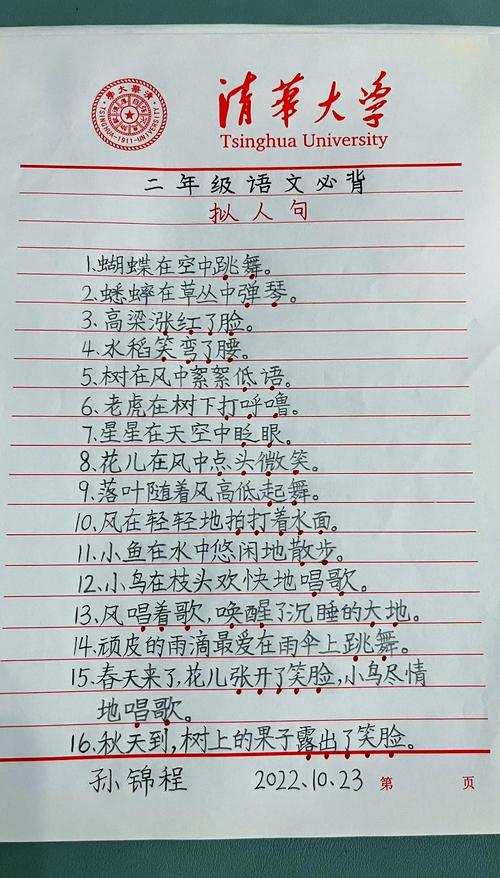 清華大学
Tsinghua University
二年级语文必背
拟人句
1.蝴蝶在空中跳舞。
2.蟋蟀在草丛中弹琴。
3.高梁涨红了脸。
4.水稻笑弯了腰。
5.树在风中絮絮低语。
6.老虎在树下打呼噜。
7.星星在天空中眨眼。
8.花儿在风中点头微笑。
9.落叶随着风高低起舞。
10.风在轻轻地拍打着水面。
11.小鱼在水中悠闲地散步。
12.小鸟在枝头欢快地唱歌。
13.风唱着歌,唤醒了沉睡的大地。
14.顽皮的雨滴最爱在雨伞上跳舞。
15.春天来了,花儿张开了笑脸,小鸟尽情
地唱歌。
16.秋天到,树上的果子露出了笑脸。
孙锦程 2022.10.23 第 页